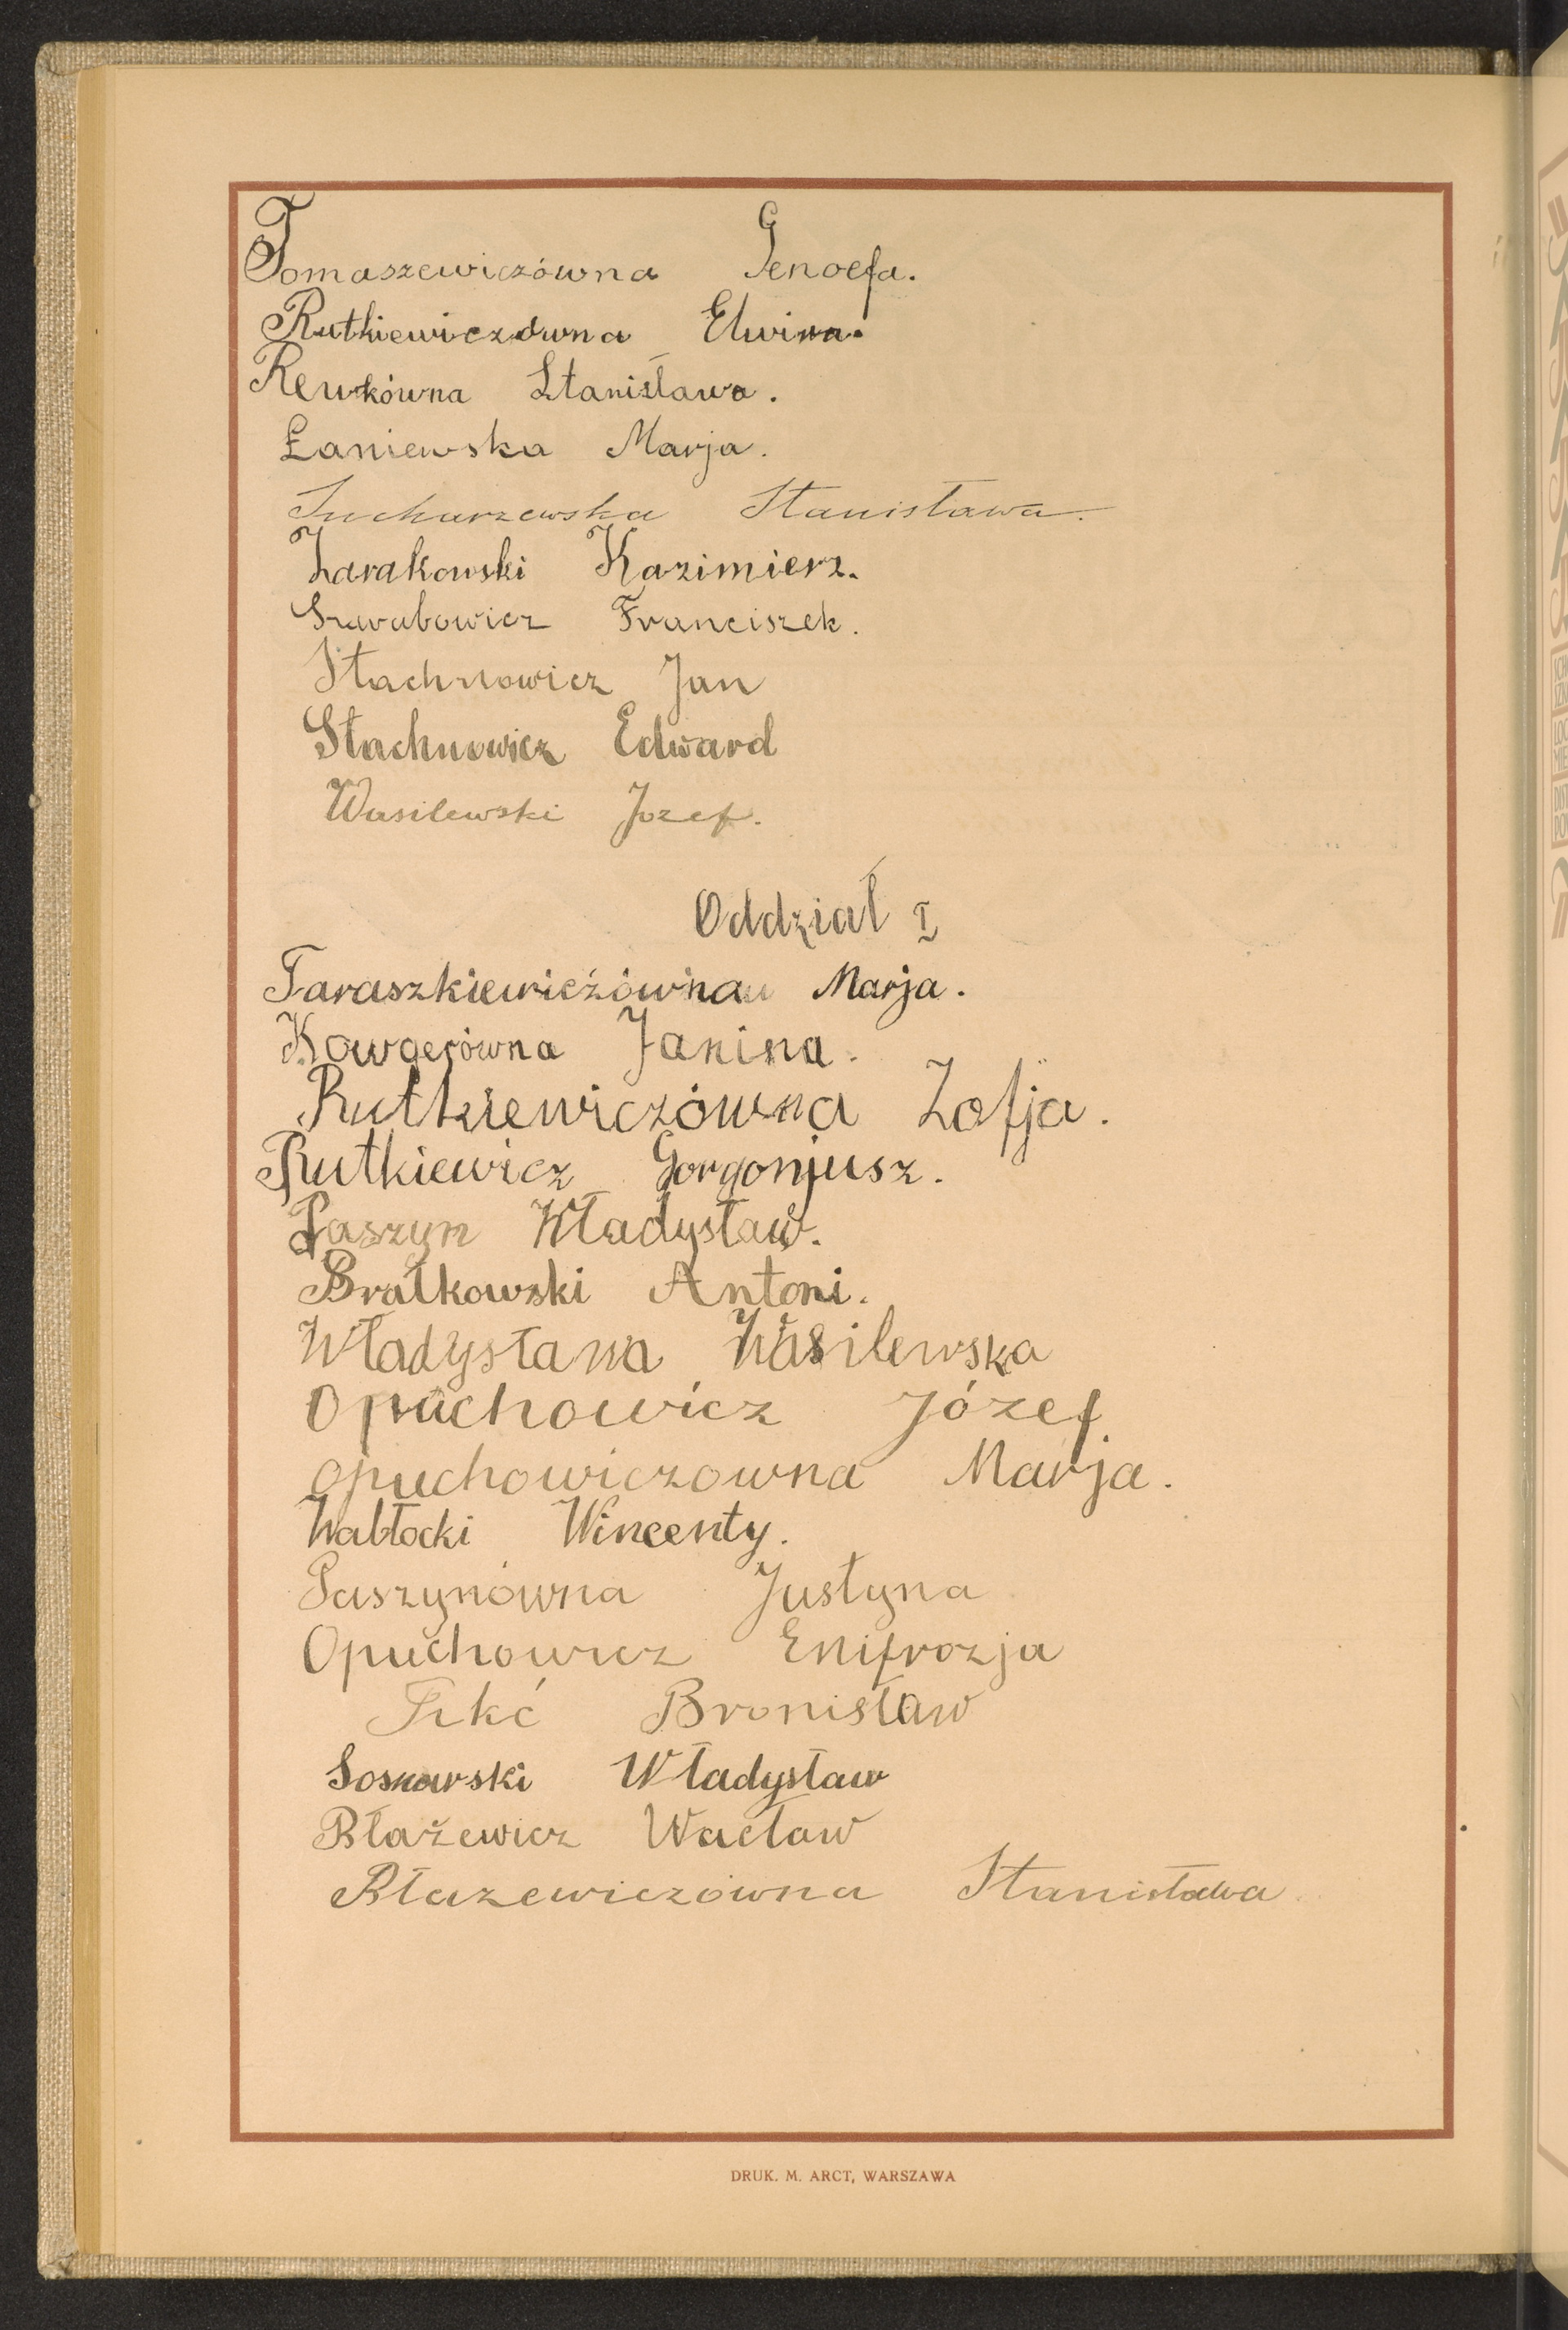 Tomaszewiczówna Genoefa.
Rutkiewiczówna Elwira.
Rewkówna Stanisława.
Łaniewska Marja.
Sucharzewska Stanisława.
Żarakowski Kazimierz.
Szwabowicz Franciszek.
Stachnowicz Jan
Stachnowicz Edward
Wasilewski Jozef.
Oddział I
Taraszkiewiczówna Marja.
Kowgerówna Janina.
Rutkiewiczówna Zofja.
Rutkiewicz Gorgonjusz.
Paszyn Władysław.
Bratkowski Antoni.
Władysława Wasilewska
Opuchowicz Józef
opuchowiczowna Marja.
Wabłocki Wincenty.
Paszynówna Justyna
Opuchowicz Enifrozja
Bronisław
Sosnowski Władysław
Błażewicz Wacław
Błazewiczówna Stanisława
DRUK. M. ARCT, WARSZAWA